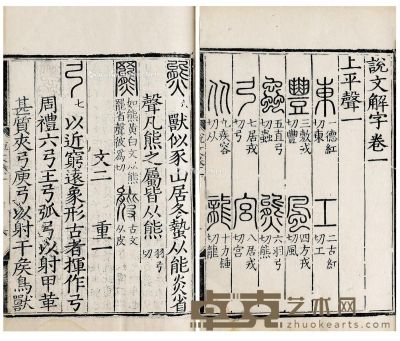 說文解字卷一
上平聲一
東 一德紅切東 工 二古紅切工
豐 三敷戎切豐 風 四方戎切風
蟲 五直弓切蟲 熊 六羽弓切熊
弓 七居戎切弓 宮 八居戎切宮
从 九疾容切从 龍 十力鍾切龍
熊 六 獸似豕山居冬蟄从能炎省
聲凡熊之屬皆从熊 羽弓切
羆 如熊黃白文从熊罷省聲彼為切 古文从皮
文二 重一
弓 七 以近窮遠象形古者揮作弓
周禮六弓王弓弧弓以射甲革
甚質夾弓庾弓以射干矦鳥獸
卓克艺术网
zhuokearts.com